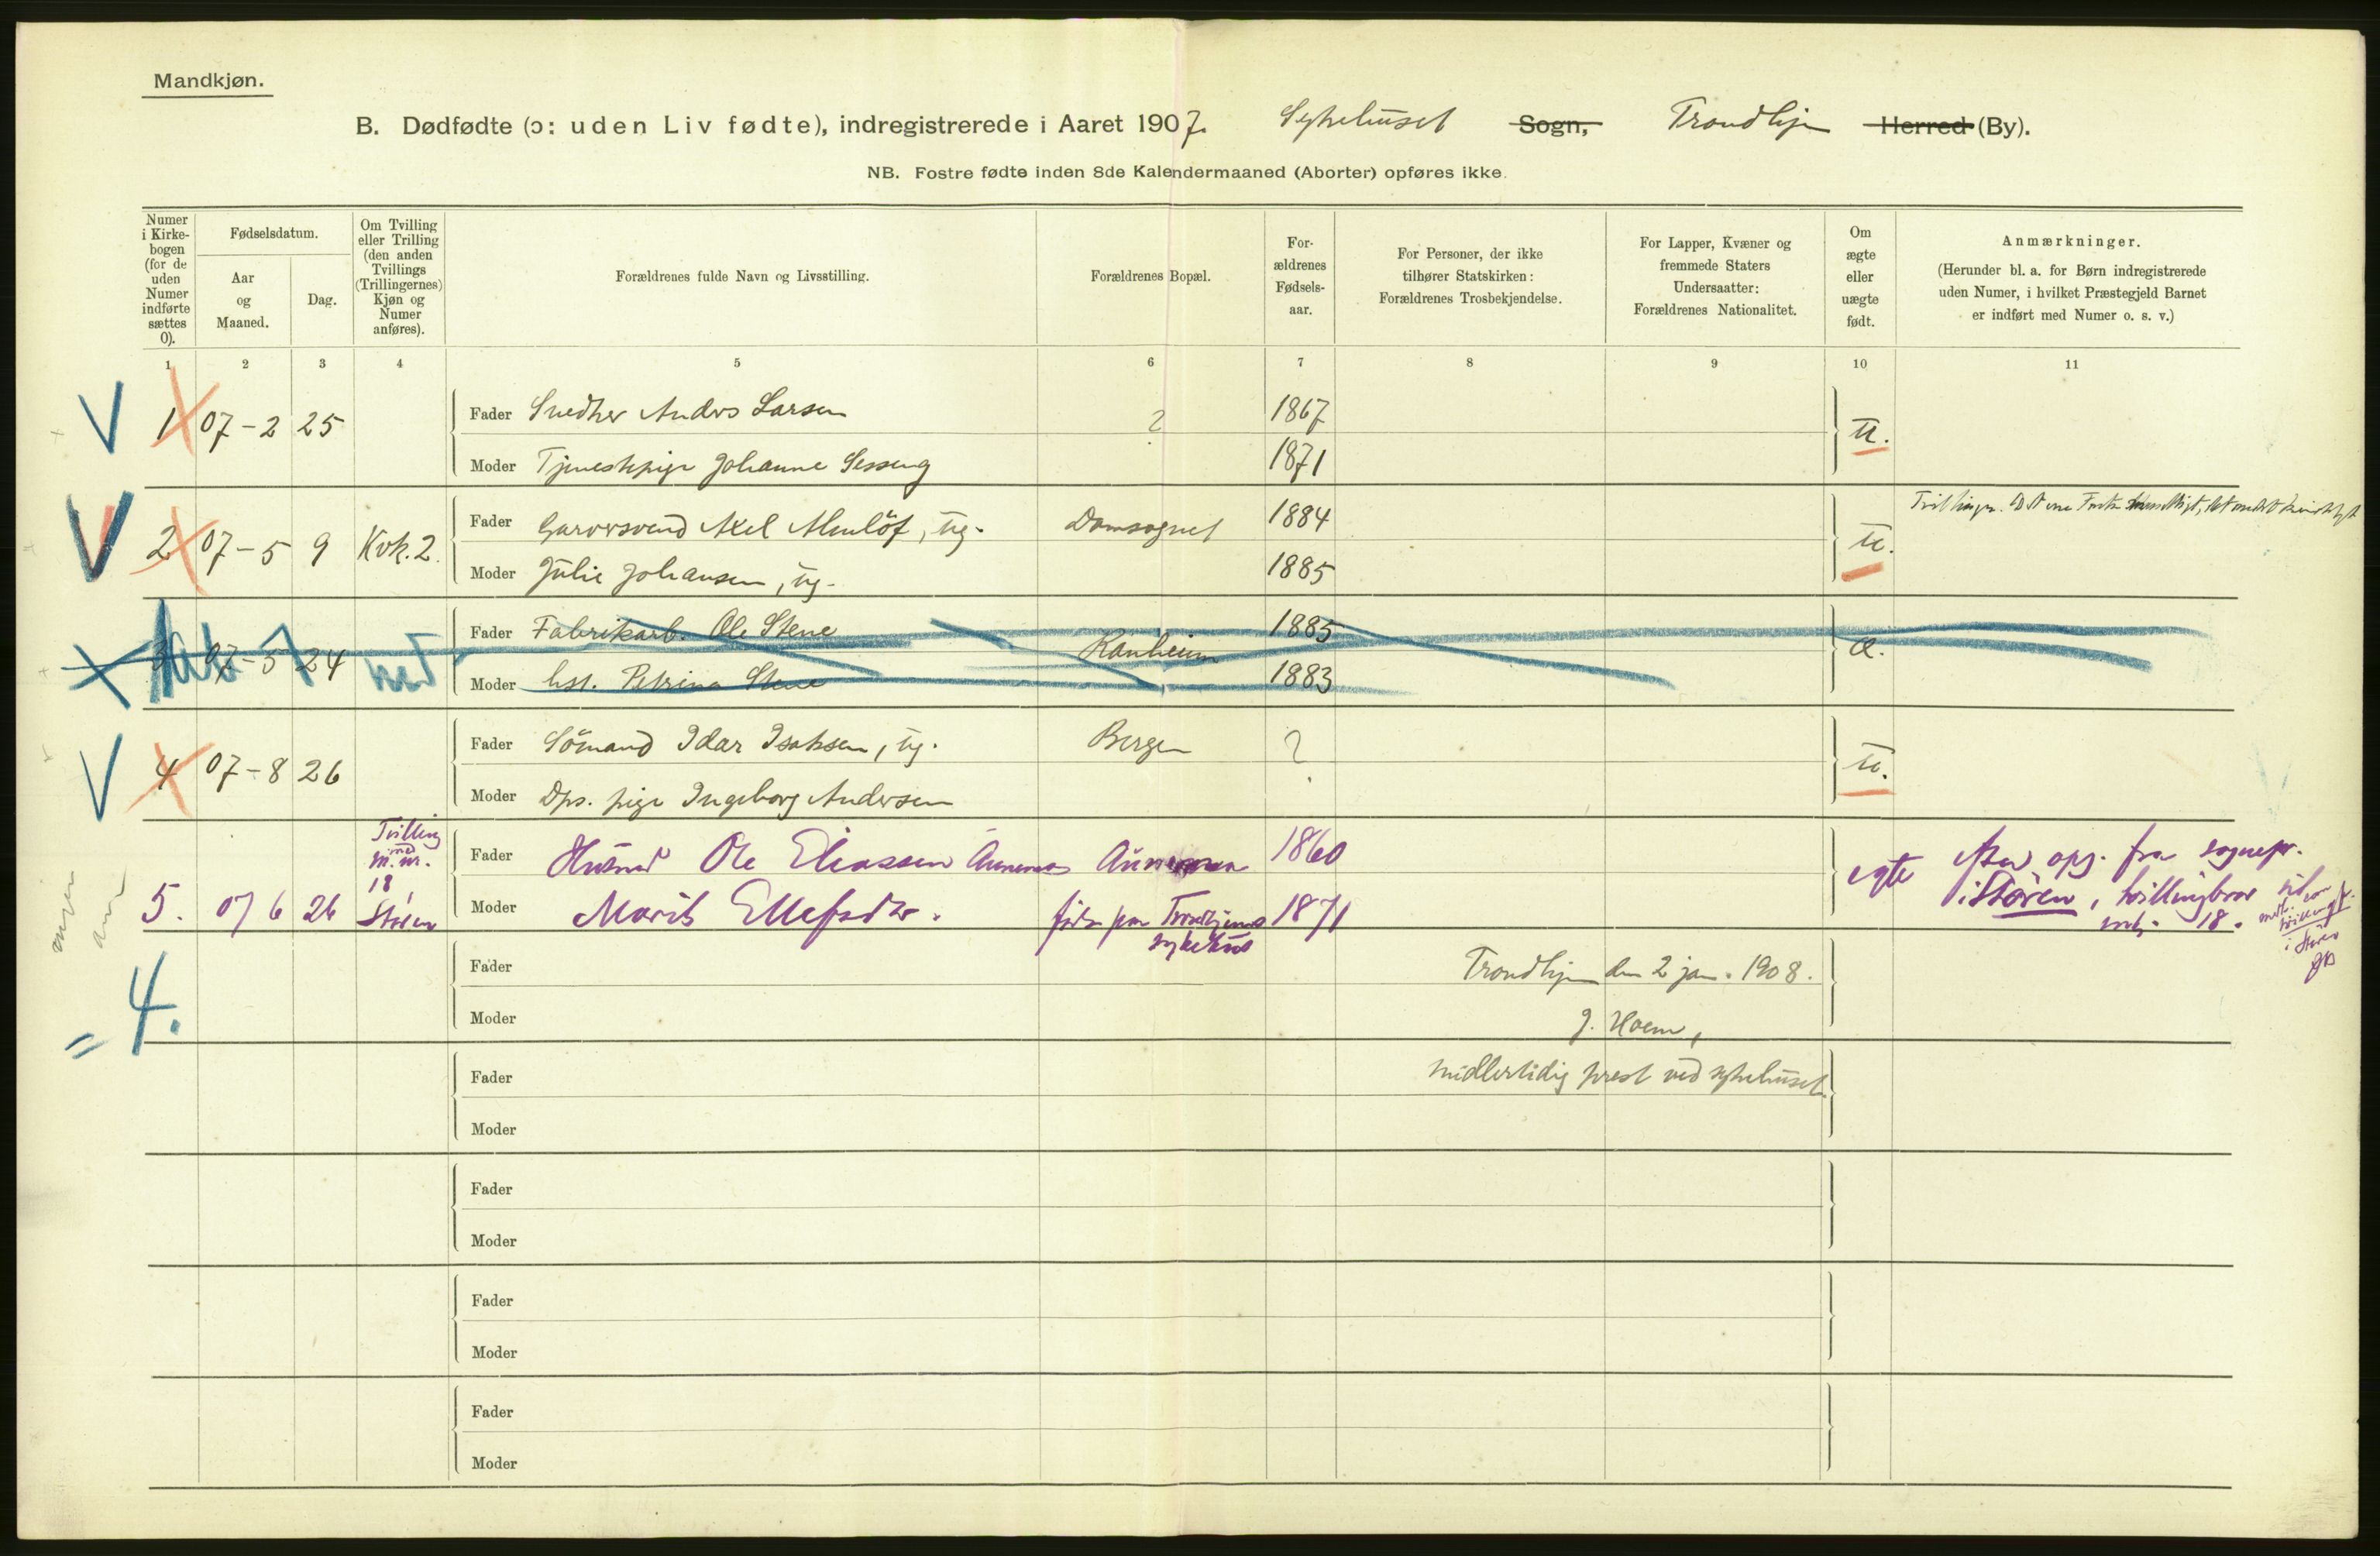 Mandkjøn.
B. Dødfødte (ɔ: uden Liv fødte), indregistrerede i Aaret 1907. Sykehuset Sogn, Trondhjem Herred (By).
NB. Fostre fødte inden 8de Kalendermaaned (Aborter) opføres ikke.
Numer i Kirke-bogen (for de uden Numer indførte sættes 0).
Fødselsdatum.
Aar og Maaned.
Dag.
Om Tvilling eller Trilling (den anden Tvillings (Trillingernes) Kjøn og Numer anføres).
Forældrenes fulde Navn og Livsstilling.
Forældrenes Bopæl.
For-ældrenes Fødsels-aar.
For Personer, der ikke tilhører Statskirken: Forældrenes Trosbekjendelse.
For Lapper, Kvæner og fremmede Staters Undersaatter: Forældrenes Nationalitet.
Om ægte eller uægte født.
Anmærkninger.
(Herunder bl. a. for Børn indregistrerede uden Numer, i hvilket Præstegjeld Barnet er indført med Numer o. s. v.)
1 2 3 4 5 6 7 8 9 10 11
V 1 07-2 25 Fader Snedker Anders Larsen ? 1867 u.
Moder Tjenestepige Johanne Sesseng 1871
V 2 07-5 9 Kvk. 2. Fader Garversvend Axel Almlöf, ug. Domsognet 1884 u.
Moder Julie Johansen, ug. 1885
3 07-5 24 Fader Fabrikarb. Ole Stene Ranheim 1885 æ.
Moder hst. Petrina Stene 1883
V 4 07-8 26 Fader Sömand Idar Isaksen, ug. Bergen ? u.
Moder Dps. pige Ingeborg Andersen
Tvilling med m. nr. 18, Støren
5. 07 6 26 Fader Husmd Ole Eliassen 1860 egte
Moder Marit Ellefsdtr. født paa Trondhjems sykehus 1871
opg. fra sognepr. i Støren, tvillingbror 18.
= 4.
Fader
Moder
Trondhjem den 2 jan. 1908.
J. Hoem,
midlertidig prest ved sykehuset.
Fader
Moder
Fader
Moder
Fader
Moder
Fader
Moder